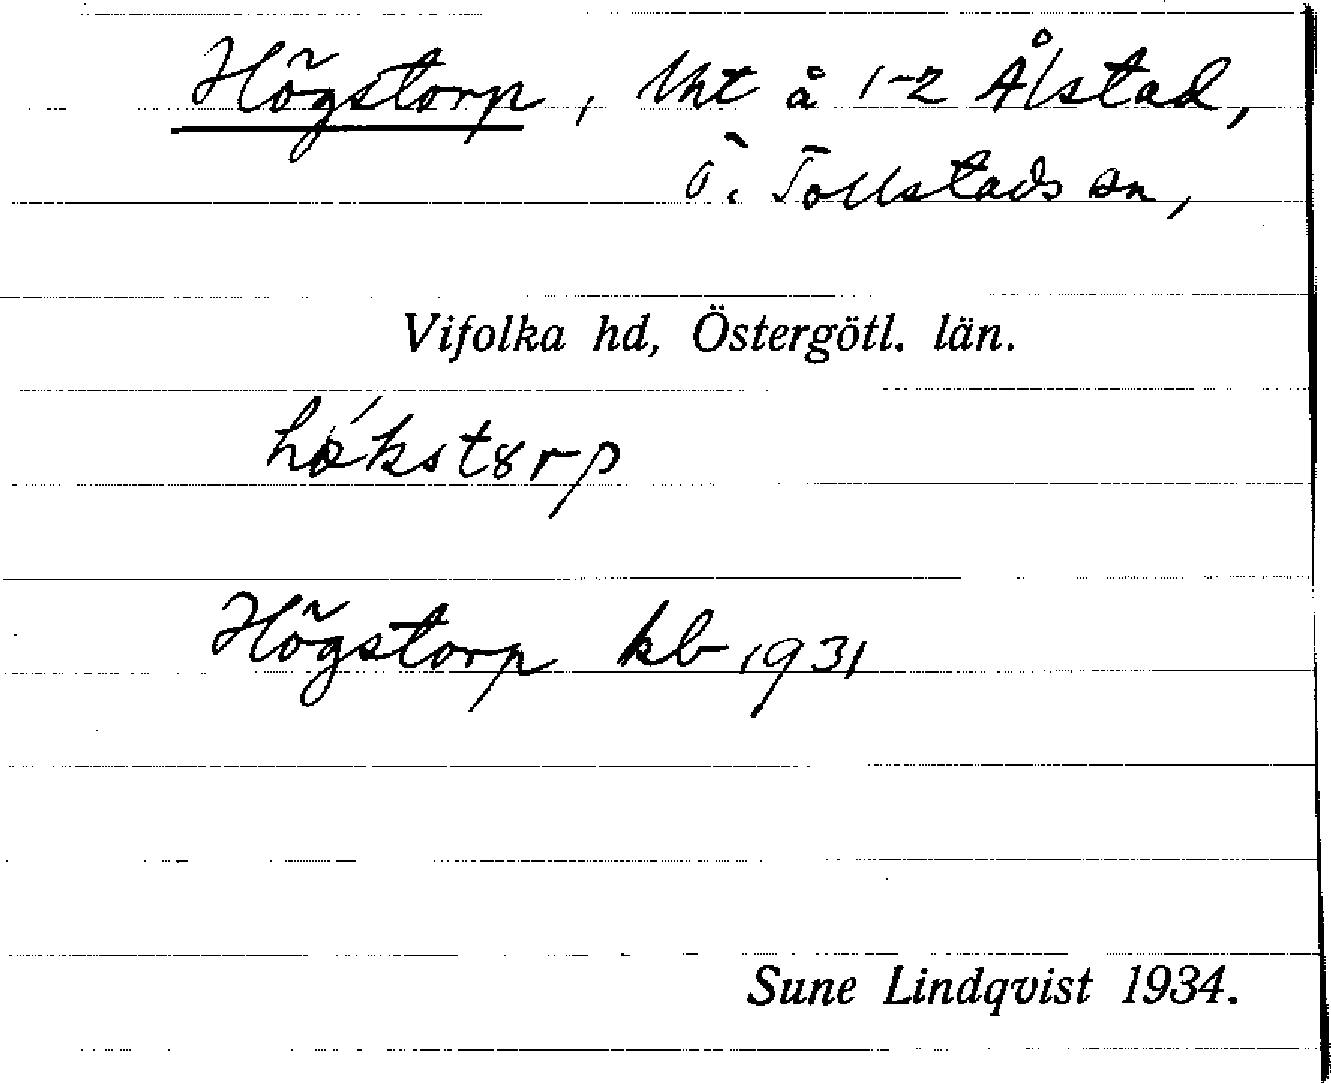 Högstorp, lht å 1-2 Ålstad,
Ö. Tollstads sn,
Vifolka hd, Östergötl. län.
Högstorp kb 1931
Sune Lindqvist 1934.